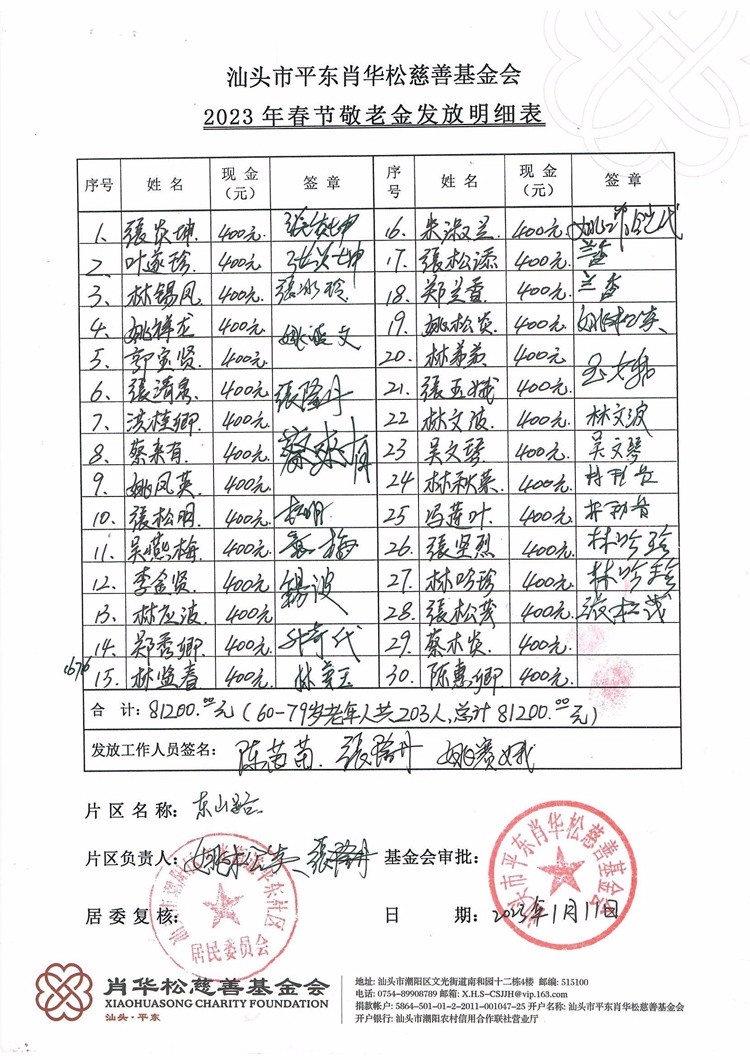 汕头市平东肖华松慈善基金会
2023年春节敬老金发放明细表
序号 姓名 现金(元) 签章 序号 姓名 现金(元) 签章
1. 張炎坤. 400元. 張炎坤 16. 朱淑兰. 400元.
2. 叶遂珍. 400元. 17. 張松添. 400元. 兰香
3. 林锡凤. 400元. 張冰玲 18. 郑兰香. 400元. 兰香
4. 姚祥龙 400元. 19. 姚松炎. 400元. 姚松炎
5. 郭宝贤. 400元. 20. 林弟弟. 400元.
6. 張清泉. 400元. 張隆丹 21. 張玉娥 400元.
7. 洪桂卿. 400元. 22. 林文波. 400元. 林文波
8. 蔡来有. 400元. 蔡来有 23. 吴文琴. 400元. 吴文琴
9. 姚凤英. 400元. 24. 林秋荣. 400元.
10. 張松明. 400元. 松明 25. 冯莲叶. 400元.
11. 吴燕梅. 400元. 26. 張坚烈. 400元. 林吟珍
12. 李金贤. 400元. 锡波 27. 林吟珍. 400元. 林吟珍
13. 林应波. 400元. 28. 張松茂. 400元. 張松茂
14. 郑秀卿. 400元. 29. 蔡木炎. 400元.
15. 林监春. 400元. 林美玉 30. 陈惠卿. 400元.
合 计:81200.00元(60-79岁老年人共203人,总计81200.00元)
发放工作人员签名: 陈苗苗. 張隆丹 姚赛娥
片区名称: 东山路
片区负责人: 姚松炎、張隆丹 基金会审批:
居委复核: 日 期: 2023年1月17日
平东社区
居民委员会
汕头市平东肖华松慈善基金会
肖华松慈善基金会
XIAOHUASONG CHARITY FOUNDATION
汕头·平东
地址: 汕头市潮阳区文光街道南和园十二栋4楼 邮编: 515100
电话: 0754-89908789 邮箱: X.H.S-CSJJH@vip.163.com
捐款帐户: 5864-501-01-2-2011-001047-25 开户名称: 汕头市平东肖华松慈善基金会
开户银行: 汕头市潮阳农村信用合作联社营业厅